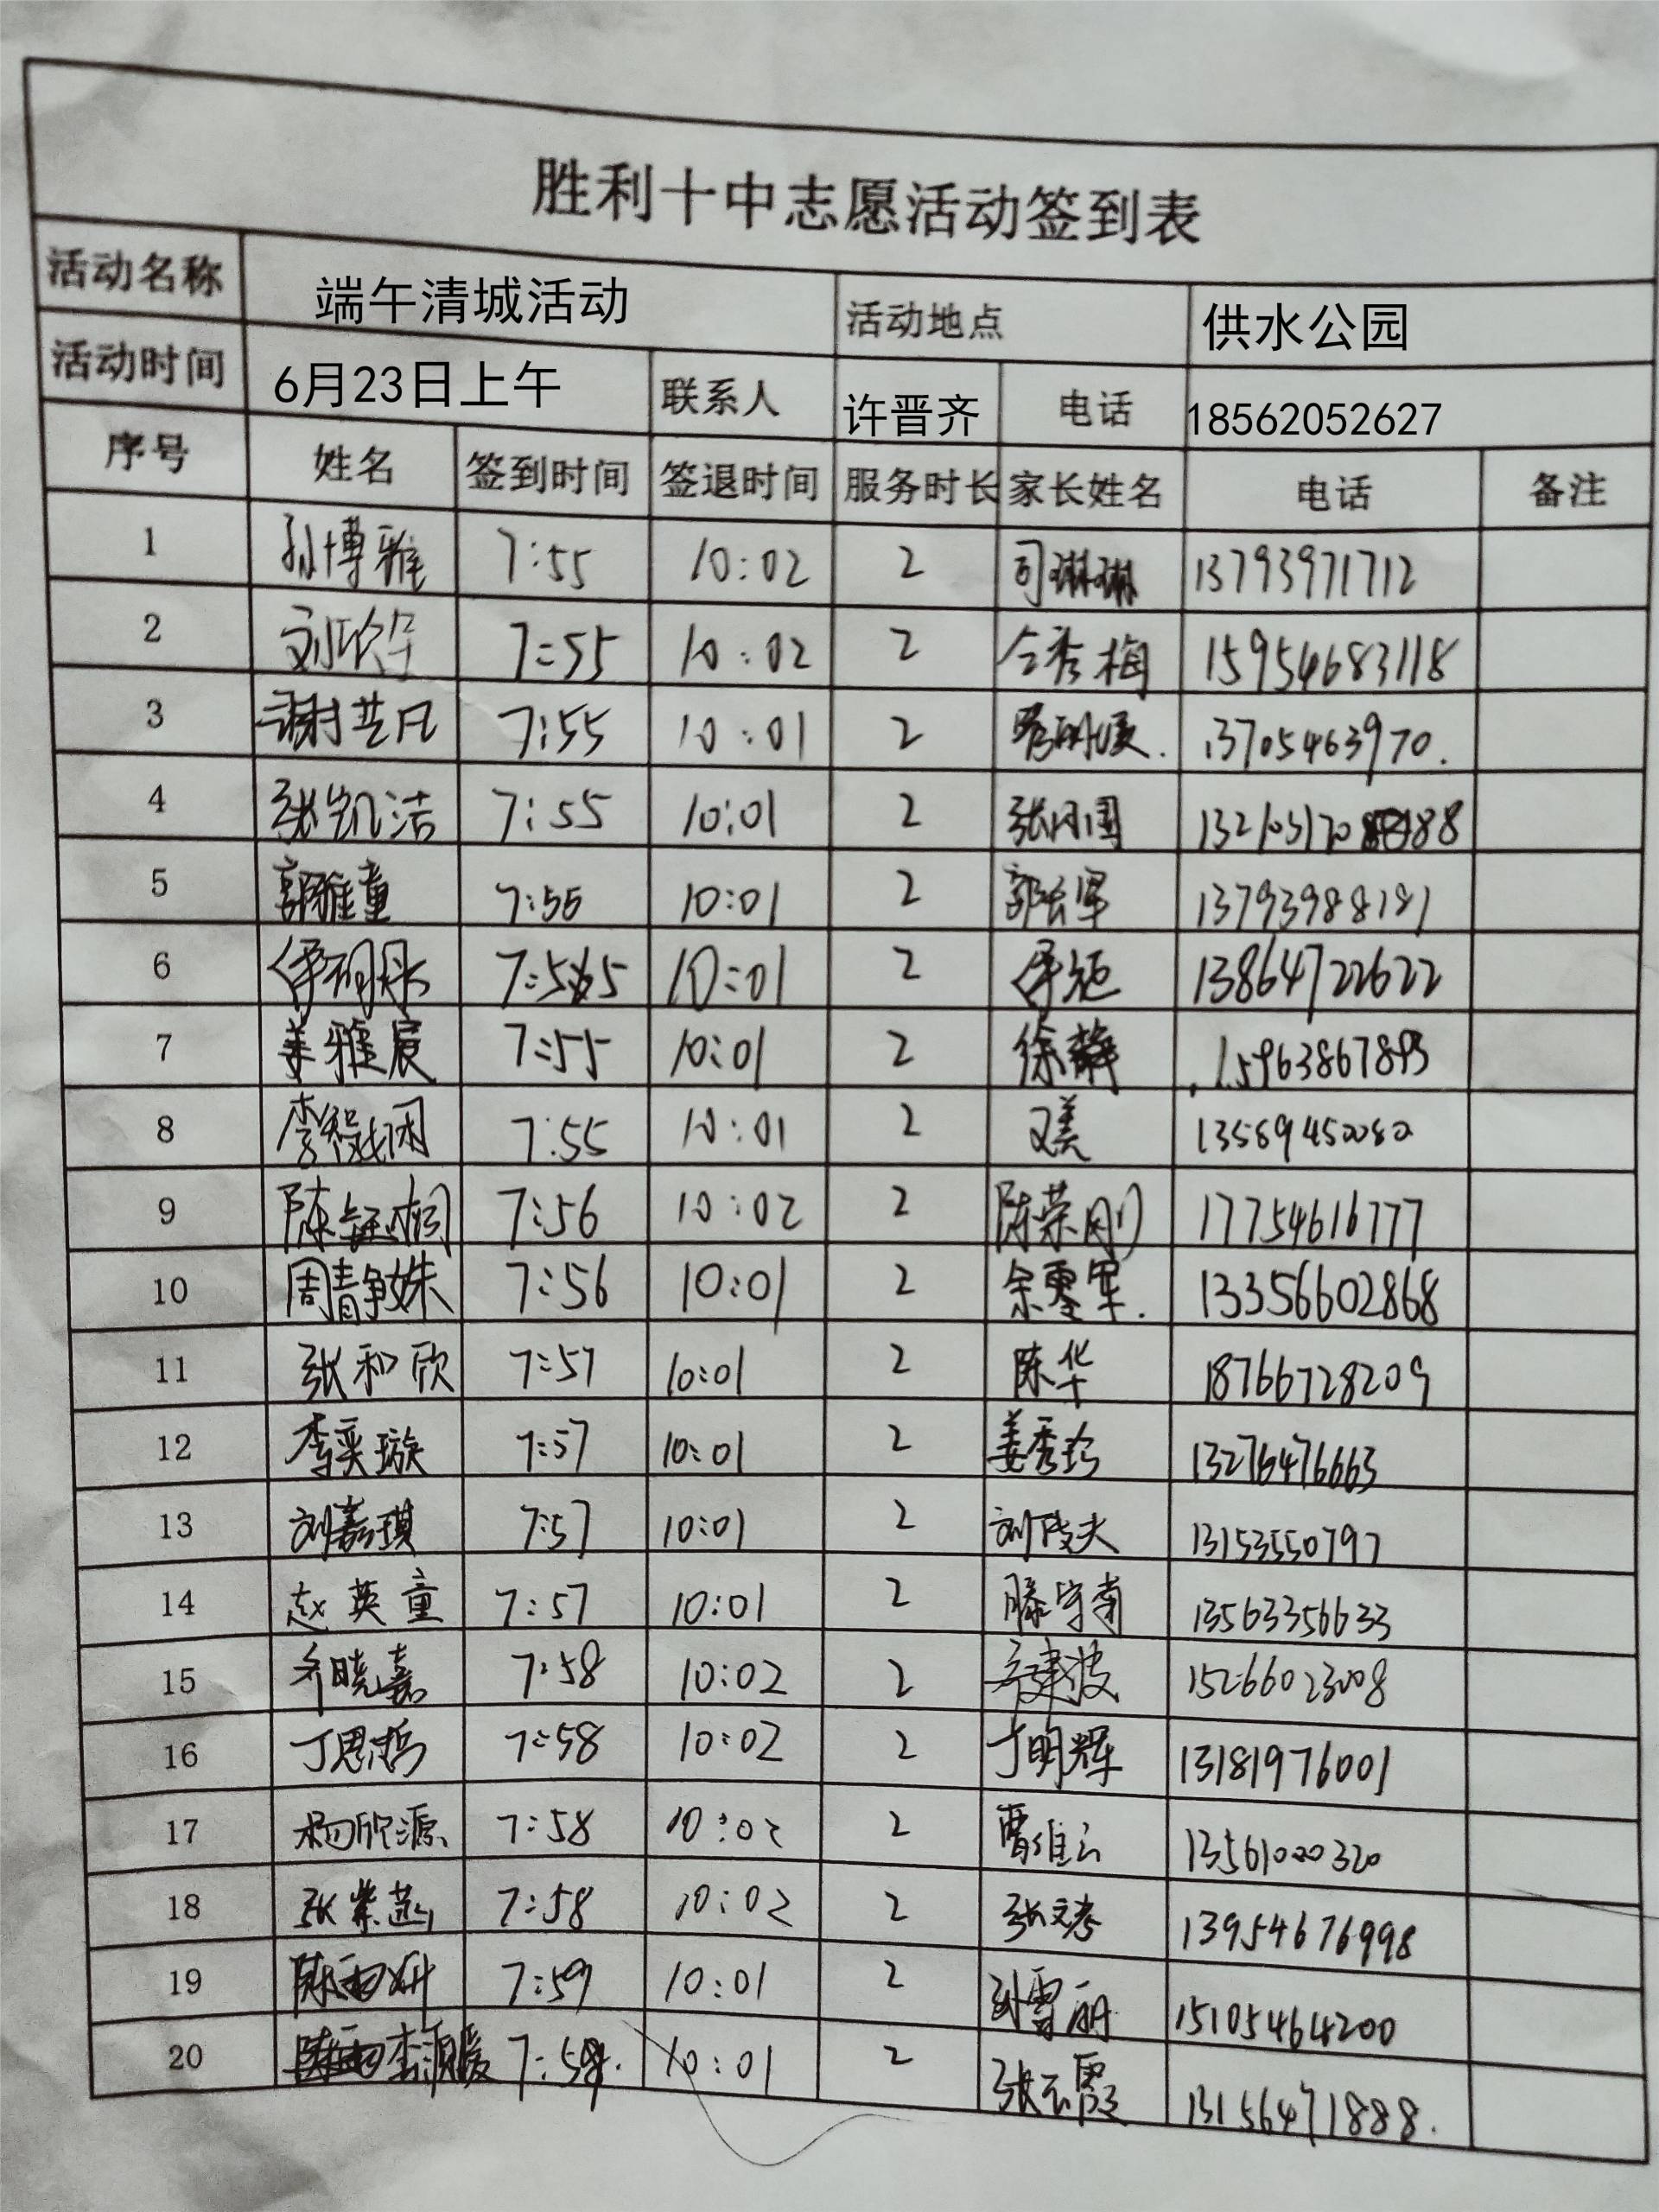 胜利十中志愿活动签到表
活动名称 端午清城活动 活动地点 供水公园
活动时间 6月23日上午 联系人 许晋齐 电话 18562052627
序号 姓名 签到时间 签退时间 服务时长 家长姓名 电话 备注
1 孙博雅 7:55 10:02 2 司琳琳 13793971712
2 7:55 10:02 2 仝秀梅 15954683118
3 谢芸凡 7:55 10:01 2 13705463970.
4 张凯洁 7:55 10:01 2 张国
5 郭雅童 7:55 10:01 2 郭长军 13793988181
6 7:55 10:01 2 13864722622
7 姜雅宸 7:55 10:01 2 徐静 15963867893
8 7:55 10:01 2 13589450080
9 陈钰桐 7:56 10:02 2 陈荣刚 17754616777
10 周静姝 7:56 10:01 2 13356602868
11 张和欣 7:57 10:01 2 陈华 18766728209
12 李奕璇 7:57 10:01 2 姜秀珍 13276476663
13 刘嘉琪 7:57 10:01 2 13153550797
14 赵英童 7:57 10:01 2 滕守南 13563356633
15 乔晓嘉 7:58 10:02 2 15266023008
16 丁思哲 7:58 10:02 2 丁明辉 13181976001
17 杨欣源 7:58 10:02 2 曹维云 13561000320
18 张紫菡 7:58 10:02 2 张文考 13954676998
19 陈雨妍 7:59 10:01 2 孙雪丽 15105464200
20 7:59. 10:01 2 张云霞 13156471888.